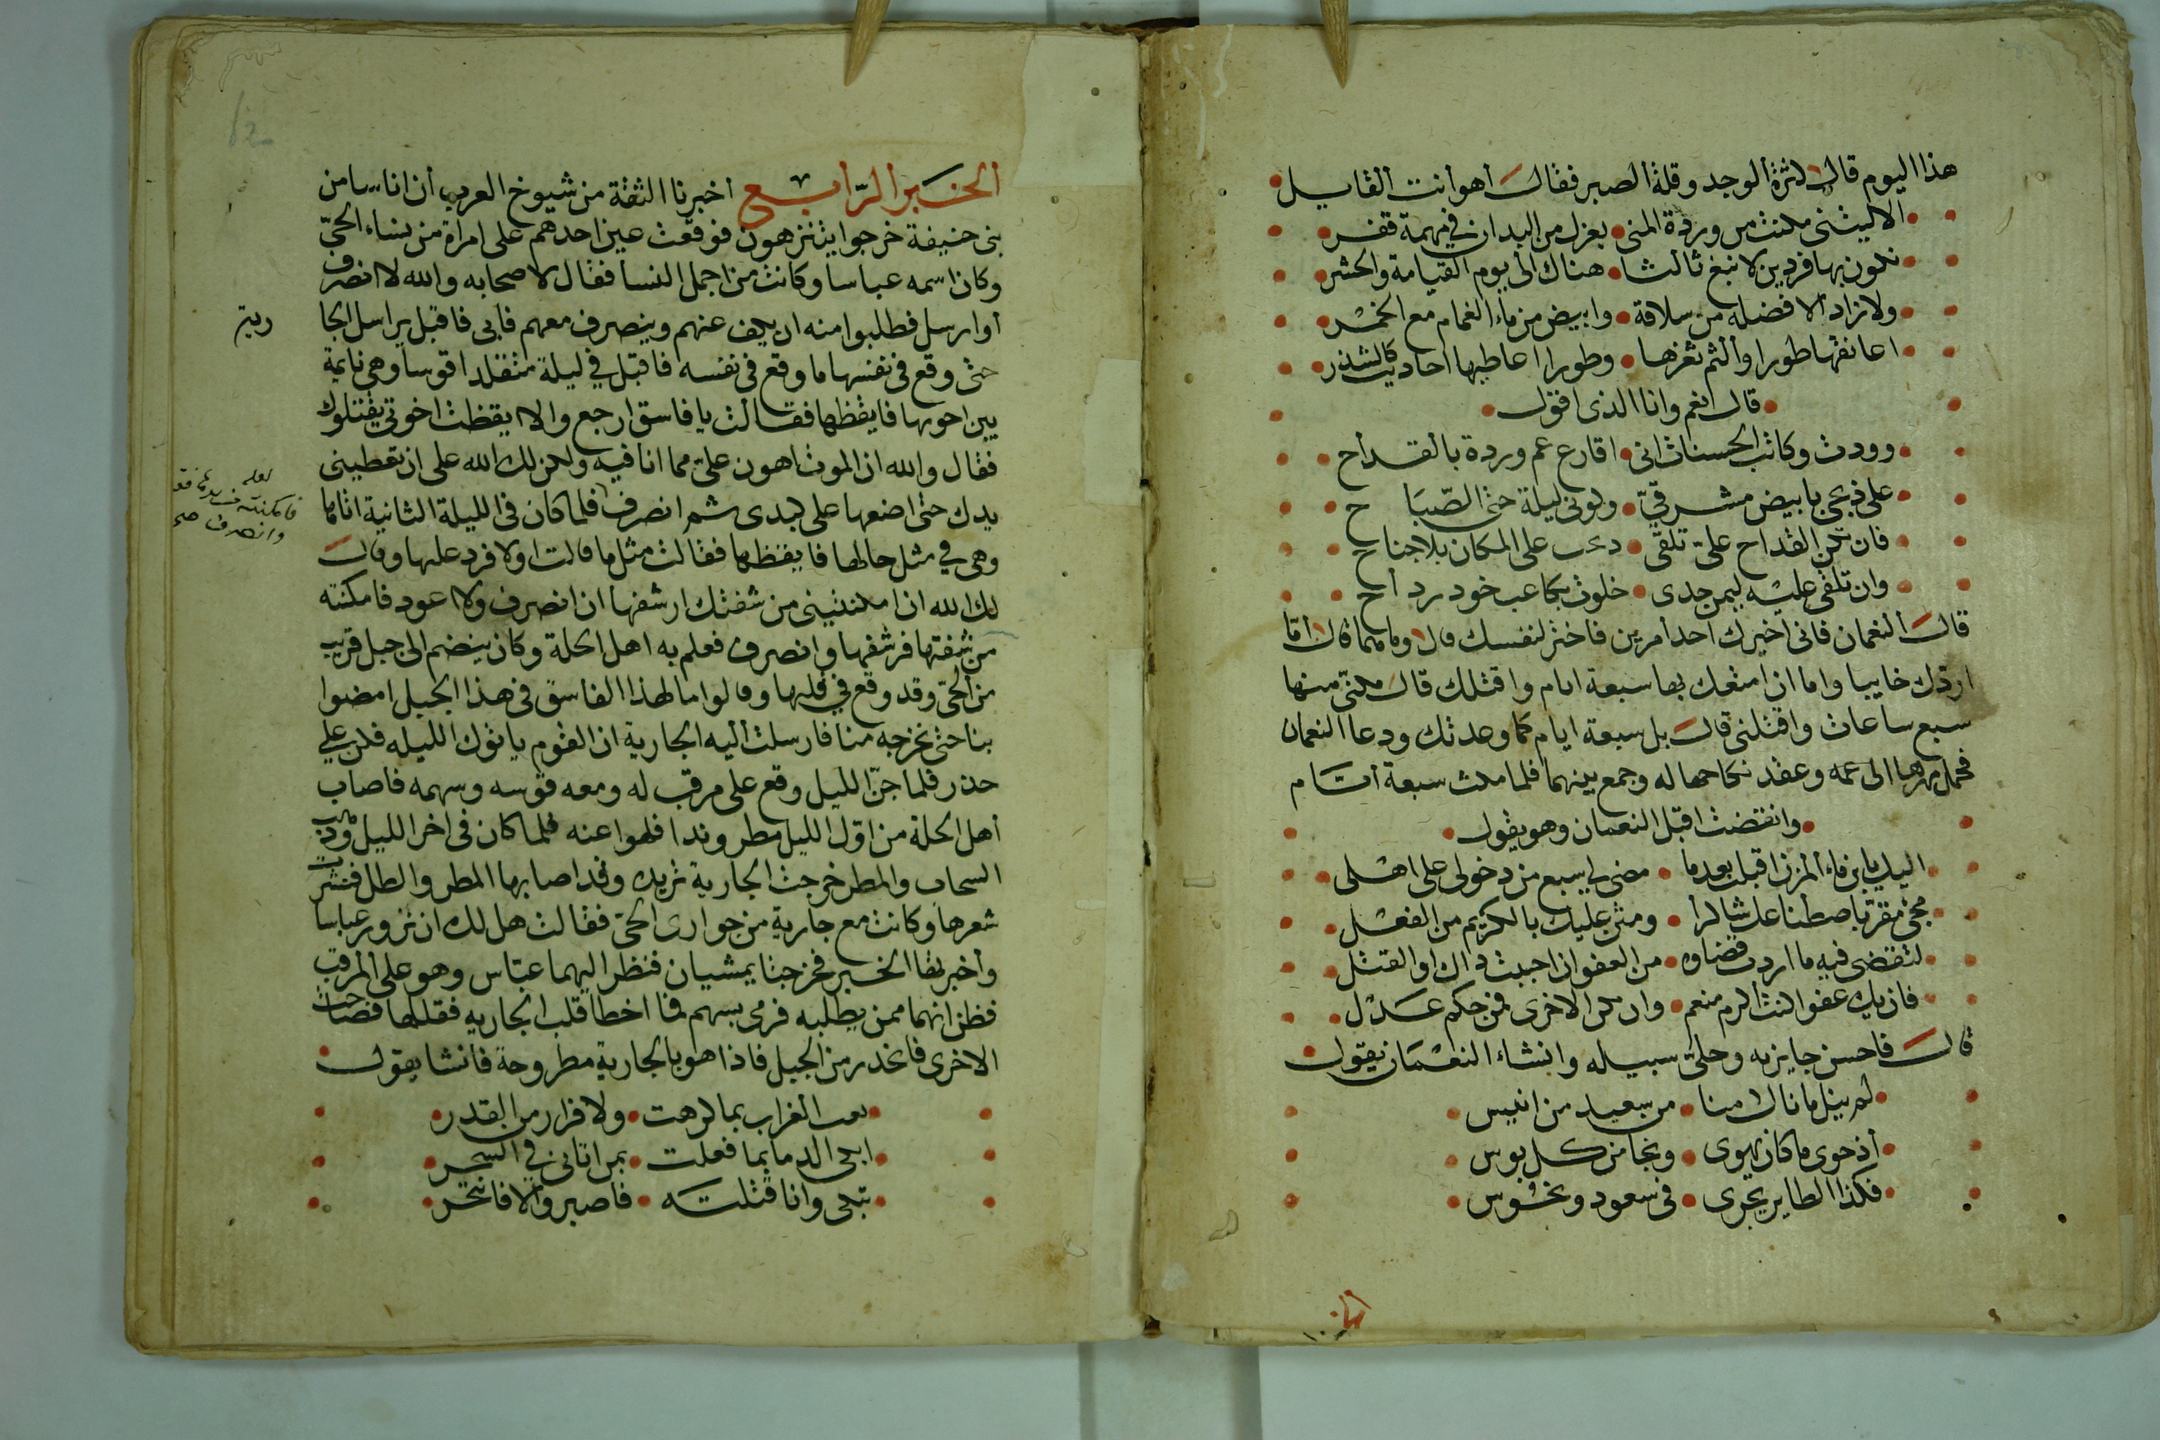 هذا اليوم قال لكثرة الوجد وقلة الصبر فقال أهو أنت القايل
الا ليتنى مكنت من وردة المنى بعزل من البدان في مهمة قفر
نكون بها فردين لا نبغ ثالثا هناك الى يوم القيامة والحشر
ولا زاد الا فضله من سلافة وابيض من ماء الغمام مع الخمر
اعانقها طورا والثم ثغرها وطورا اعاطيها احاديث كالشذر
قال نعم وانا الذى اقول
وودت وكاتب الحسنات انى اقارع عم وردة بالقداح
على ذبحى بابيض مشرفيّ وكونى ليلة حتى الصّباح
فان تكن القداح علىّ تلقى ذبحت على المكان بلا جناح
وان تلقى عليه ليمن جدى خلوت بكاعب خود رداح
قال النعمان فانى اخيرك احد امرين فاختر لنفسك قال وما هما قال امّا
اردك خايبا واما ان امتعك بها سبعة ايام واقتلك قال مكنّى منها
سبع ساعات واقتلنى قال بل سبعة ايام كما وعدتك ودعا النعمان
فحمل مهرها الى عمه وعقد نكاحها له وجمع بينهما فلما مكث سبعة ايام
وانقضت اقبل النعمان وهو يقول
اليك يابن ماء المزن اقبلت بعد ما مضى لى سبع من دخولى على اهلى
مجئ مقرّ باصطناعك شاكرا ومثن عليك بالكريم من الفعل
لتقضى فيه ما اردت قضاوه من العفو ان احببت ذاك او القتل
فان يك عفو كنت اكرم منعم وان تكن الاخرى فمن حكم عدل
قال فاحسن جايزته وخلى سبيله وانشاء النعمان يقول
لم ينل ما نال منا من سعيد من انيس
اذ حوى ما كان يهوى ونجا من كل بوس
فكذا الطاير يجرى فى سعود ونحوس
الخبر الرّابع أخبرنا الثقة من شيوخ العرب أن اناسا من
بنى حنيفة خرجوا يتنزهون فوقعت عين احدهم على امراة من نساء الحىّ
وكان اسمه عباسا وكانت من اجمل النسا فقال لاصحابه والله لا انصرف
أو ارسل فطلبوا منه ان يكف عنهم وينصرف معهم فابى فاقبل يراسل الجا
رية
حتى وقع فى نفسها ما وقع فى نفسه فاقبل في ليلة متقلدا قوسا وهى نايمة
بين اخوتها فايقظها فقالت يا فاسق ارجع والا ايقظت اخوتى يقتلوك
فقال والله ان الموت اهون علىّ مما انا فيه ولكن لك الله على ان تعطينى
يدك حتى اضعها على كبدى ثم انصرف فلما كان فى الليلة الثانية اتاها
لعله
فامكنته من يدها
وانصرف صح
وهى في مثل حالها فايقظها فقالت مثل ما قالت اولا فرد عليها وقال
لك الله ان امكنتينى من شفتك ارشفها ان انصرف ولا اعود فامكنته
من شفتها فرشفها وانصرف فعلم به اهل الحلة وكان ينضم الى جبل قريب
من الحىّ وقد وقع في قلبها وقالوا ما لهذا الفاسق فى هذا الجبل امضوا
بنا حتى نخرجه منا فارسلت اليه الجارية ان القوم ياتوك الليله فكن على
حذر فلما جنّ الليل وقع على مرقب له ومعه قوسه وسهمه فاصاب
أهل الحلة من اوّل الليل مطر وندا فلهوا عنه فلما كان فى اخر الليل وذهب
السحاب والمطر خرجت الجارية تريده وقد اصابها المطر والطل فنشرت
شعرها وكانت مع جارية من جوارى الحىّ فقالت هل لك ان نزور عباسا
وأخبرتها الخبر فخرجتا يمشيان فنظر اليهما عبّاس وهو على المرقب
فظن انهما ممن يطلبه فرمى بسهم فما اخطا قلب الجاريه فقتلها فصاحت
الاخرى فانحدر من الجبل فاذا هو بالجارية مطروحة فانشا يقول
نعب الغراب بما كرهت ولا فرار من القدر
ابكى الدما بما فعلت بمن اتانى في السحر
تبكى وانت قتلته فاصبر والا فانتحر